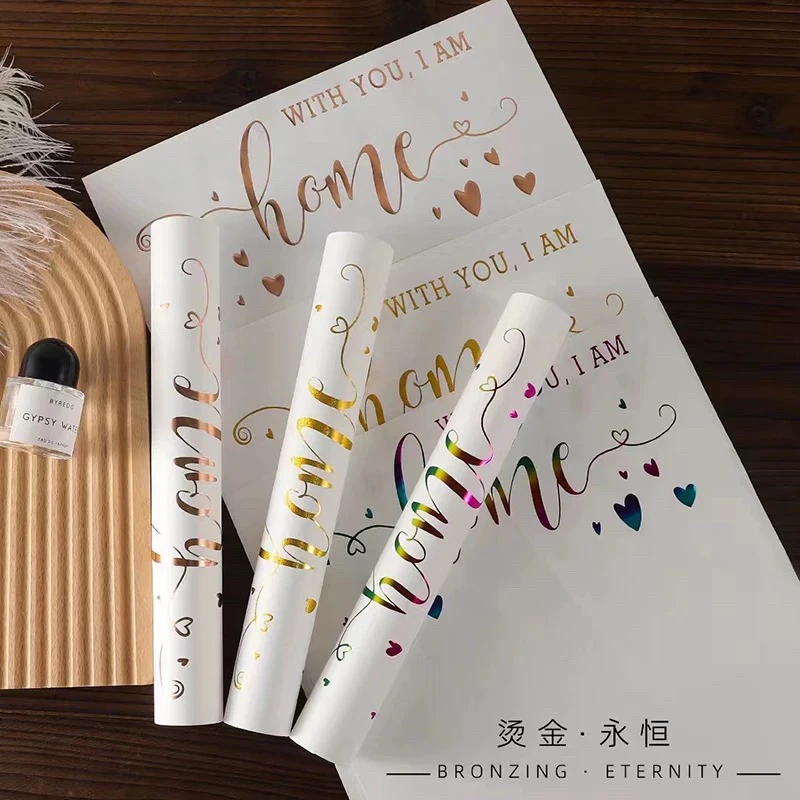 WITH YOU, I AM
home
WITH YOU, I AM
home
U, I AM
home
home
home
home
BYREDO
GYPSY WATE
烫金·永恒
BRONZING · ETERNITY